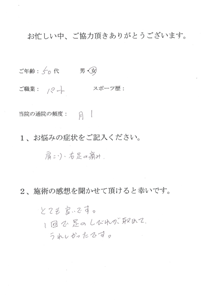 お忙しい中、ご協力頂きありがとうございます。
ご年齢：50代　男・女
ご職業：パート　スポーツ歴：
当院の通院の頻度：月1
1、お悩みの症状をご記入ください。
肩こり・右足の痛み
2、施術の感想を聞かせて頂けると幸いです。
とても良いです。
1回で足のしびれが取れて、
うれしかったです。